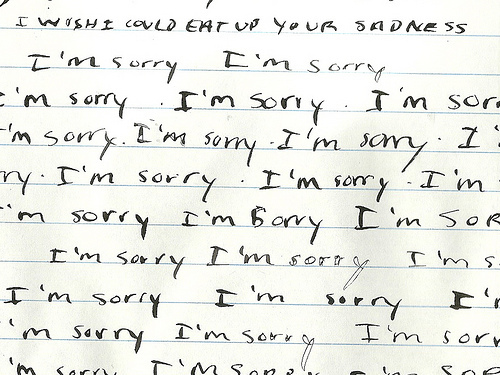 I WISH I COULD EAT UP YOUR SADNESS
I'm sorry I'm sorry
I'm sorry . I'm sorry . I'm sor
'm sorry . I'm sorry . I'm sorry . I'
ry . I'm sorry . I'm sorry . I'm
'm sorry I'm sorry I'm SOR
I'm sorry I'm sorry I'm s
I'm sorry I'm sorry I'm
'm sorry I'm sorry I'm sorr
'm sorry I'm sorry I'm sor